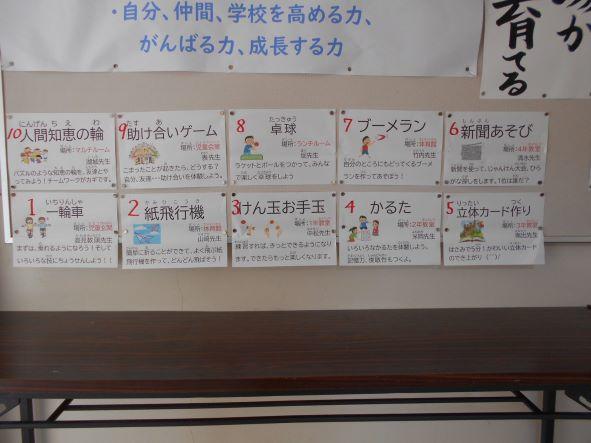 ・自分、仲間、学校を高める力、
がんばる力、成長する力
育てる
にんげん ち え わ
10 人間知恵の輪
場所:マルチルーム
パズルのような知恵の輪を、友達とや
ってみよう!チームワークがカギです。
たす あ
9 助け合いゲーム
場所:児童会室
こまったことが起きたら、どうする?
自分、友達・・・助け合いを体験しよう。
たっきゅう
8 卓球
場所:ランチルーム
ラケットとボールをつかって、みんな
で楽しく卓球をしよう
7 ブーメラン
場所:体育館
竹内先生
自分のところにもどってくるブーメ
ランを作ってあそぼう!
しんぶん
6 新聞あそび
場所:4年教室
清水先生
新聞を使って、じゃんけん大会、ひら
がな探しをします。1位は誰だ?
いちりんしゃ
1 一輪車
場所:児童玄関
まずは、乗れるようになろう!そして
いろいろな技にちょうせんしよう!!
かみ ひ こう き
2 紙飛行機
場所:体育館
山崎先生
簡単に折ることができて、よく飛ぶ紙
飛行機を作って、どんどん飛ばそう!
3 けん玉お手玉
場所:1年教室
中松先生
練習すれば、きっとできるようになり
ます。できたらもっと楽しくなります。
4 かるた
場所:2年教室
米岡先生
いろいろなかるたを体験しよう。
記憶力、俊敏性もつくよ。
りったい つく
5 立体カード作り
場所:3年教室
はさみで5分!かわいい立体カード
のでき上がり(^^)/